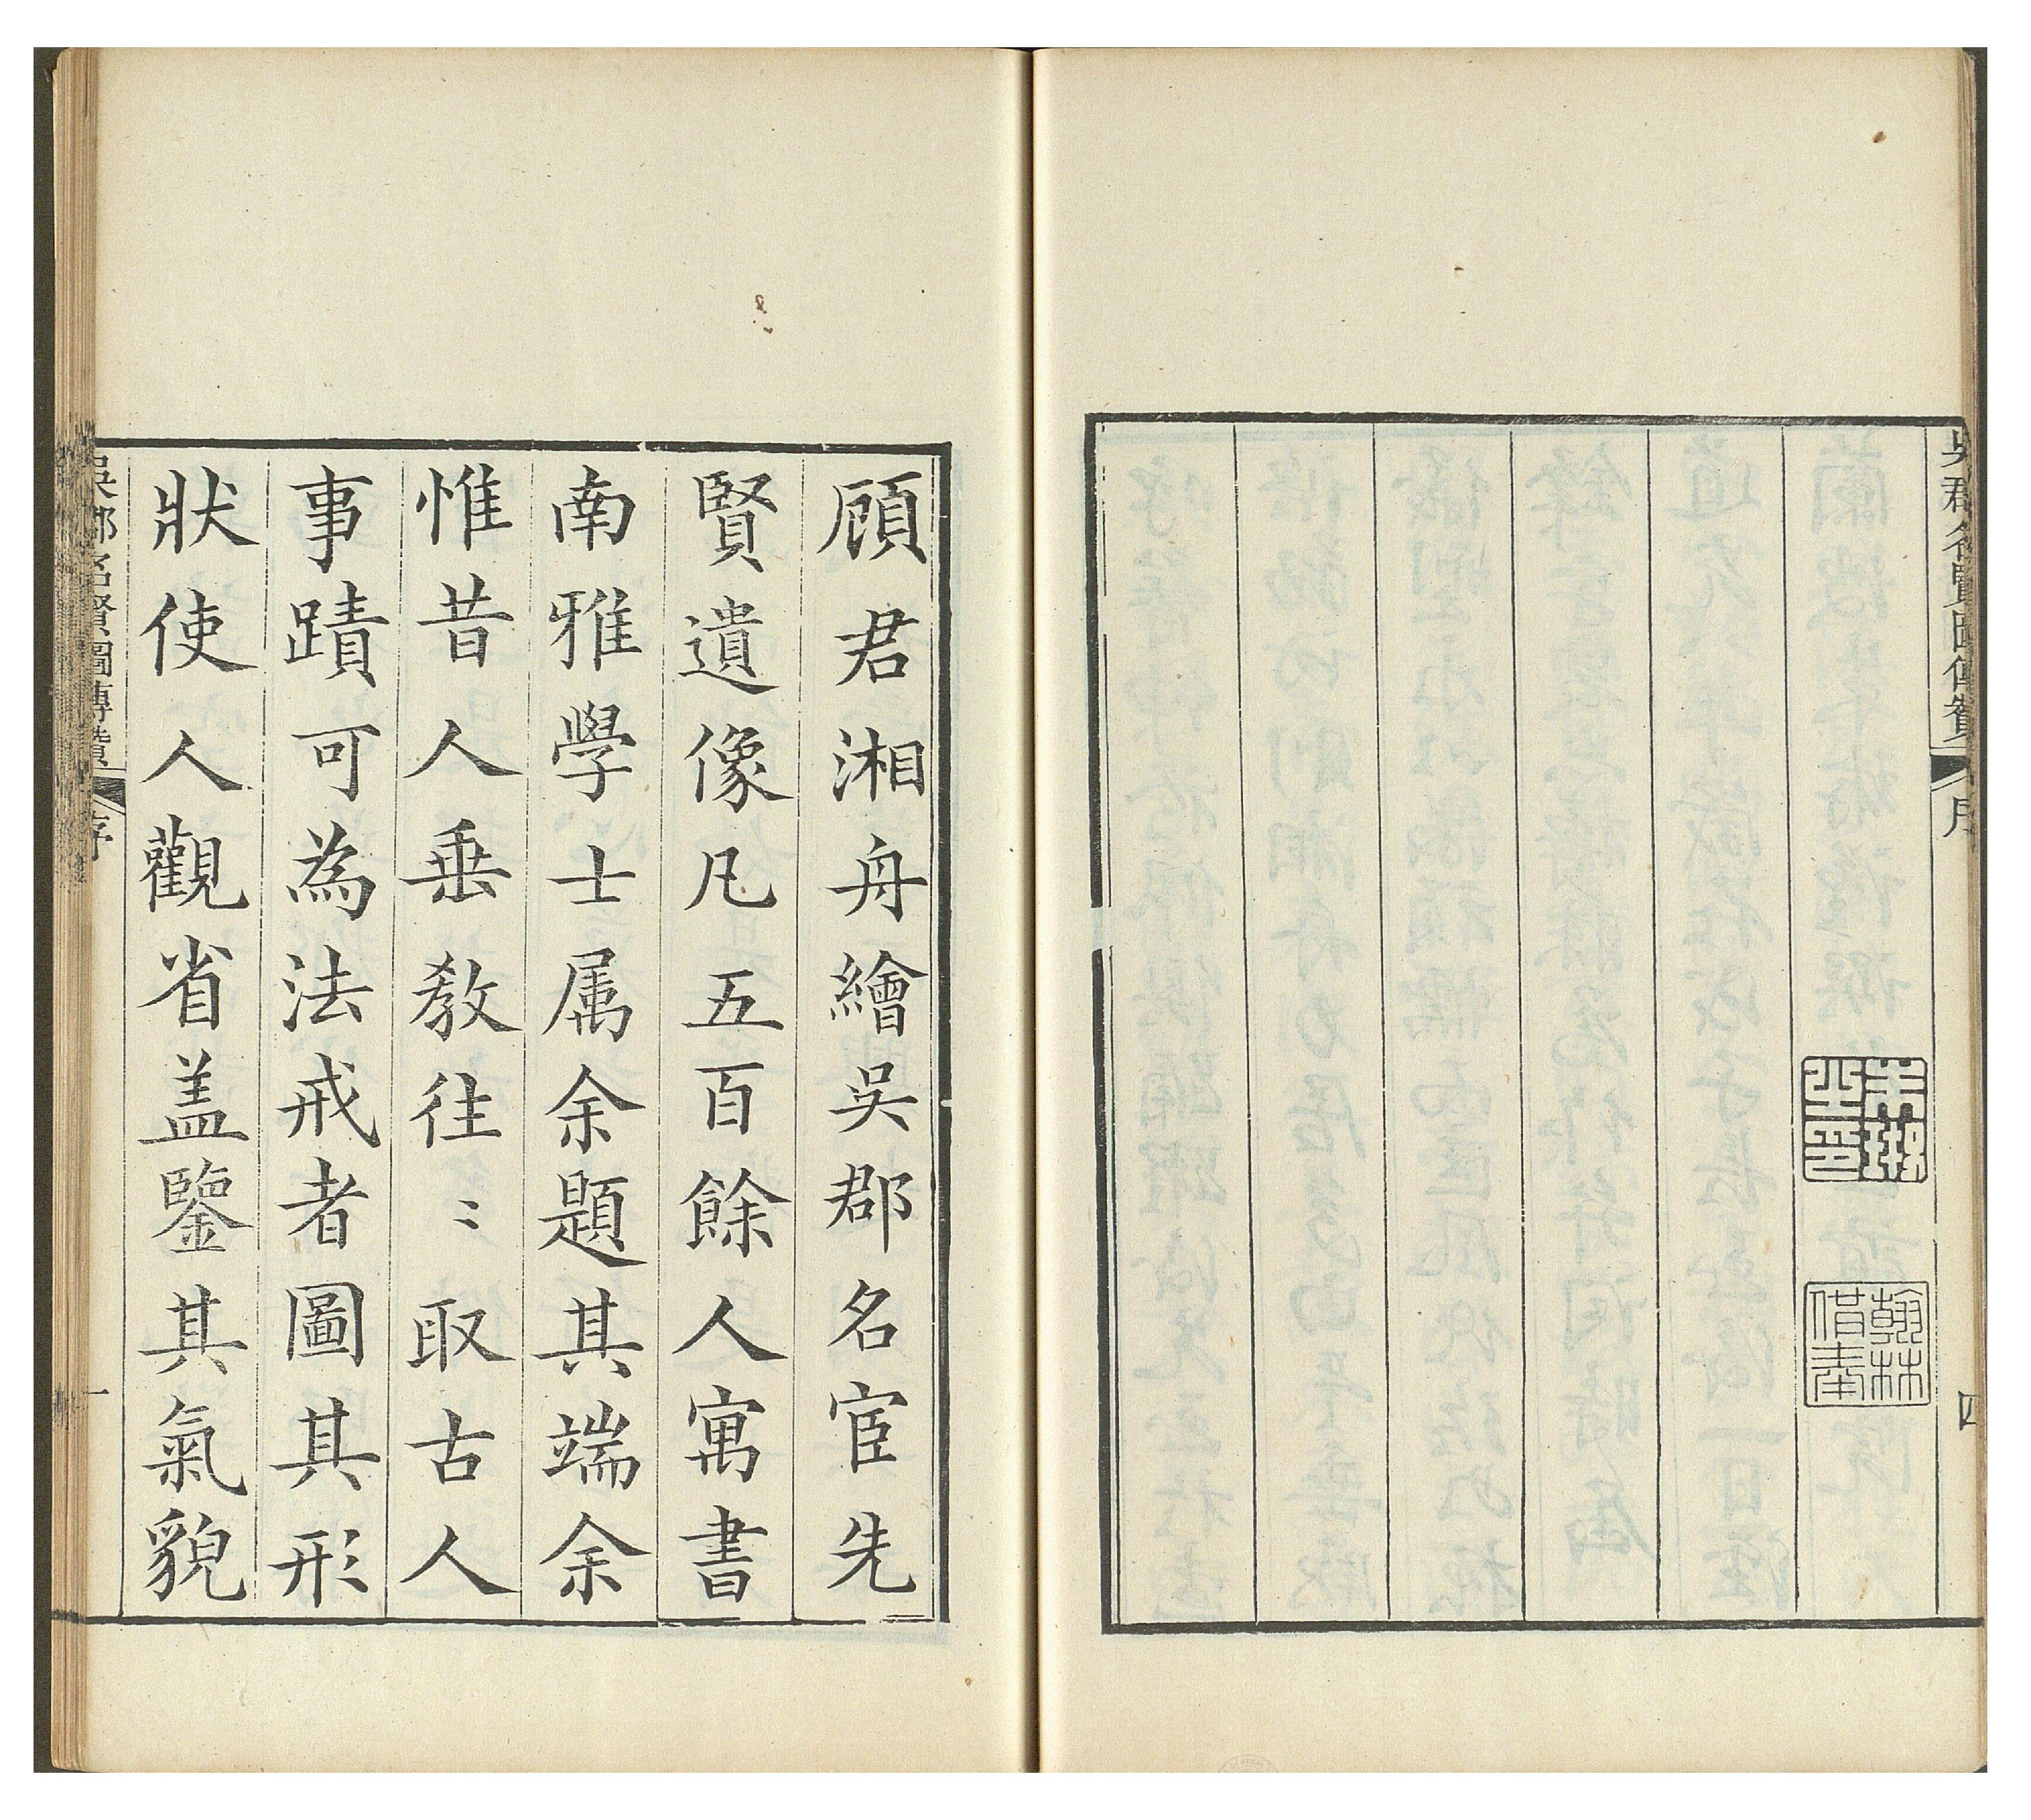 吳郡名賢圖傳贊 序 四
朱珔之印
翰林
頋君湘舟繪吳郡名宦先
賢遺像凡五百餘人寓書
南雅學士属余題其端余
惟昔人垂教往〻取古人
事蹟可為法戒者圖其形
狀使人觀省盖鑒其氣貌
吳郡名賢圖傳贊 序 一